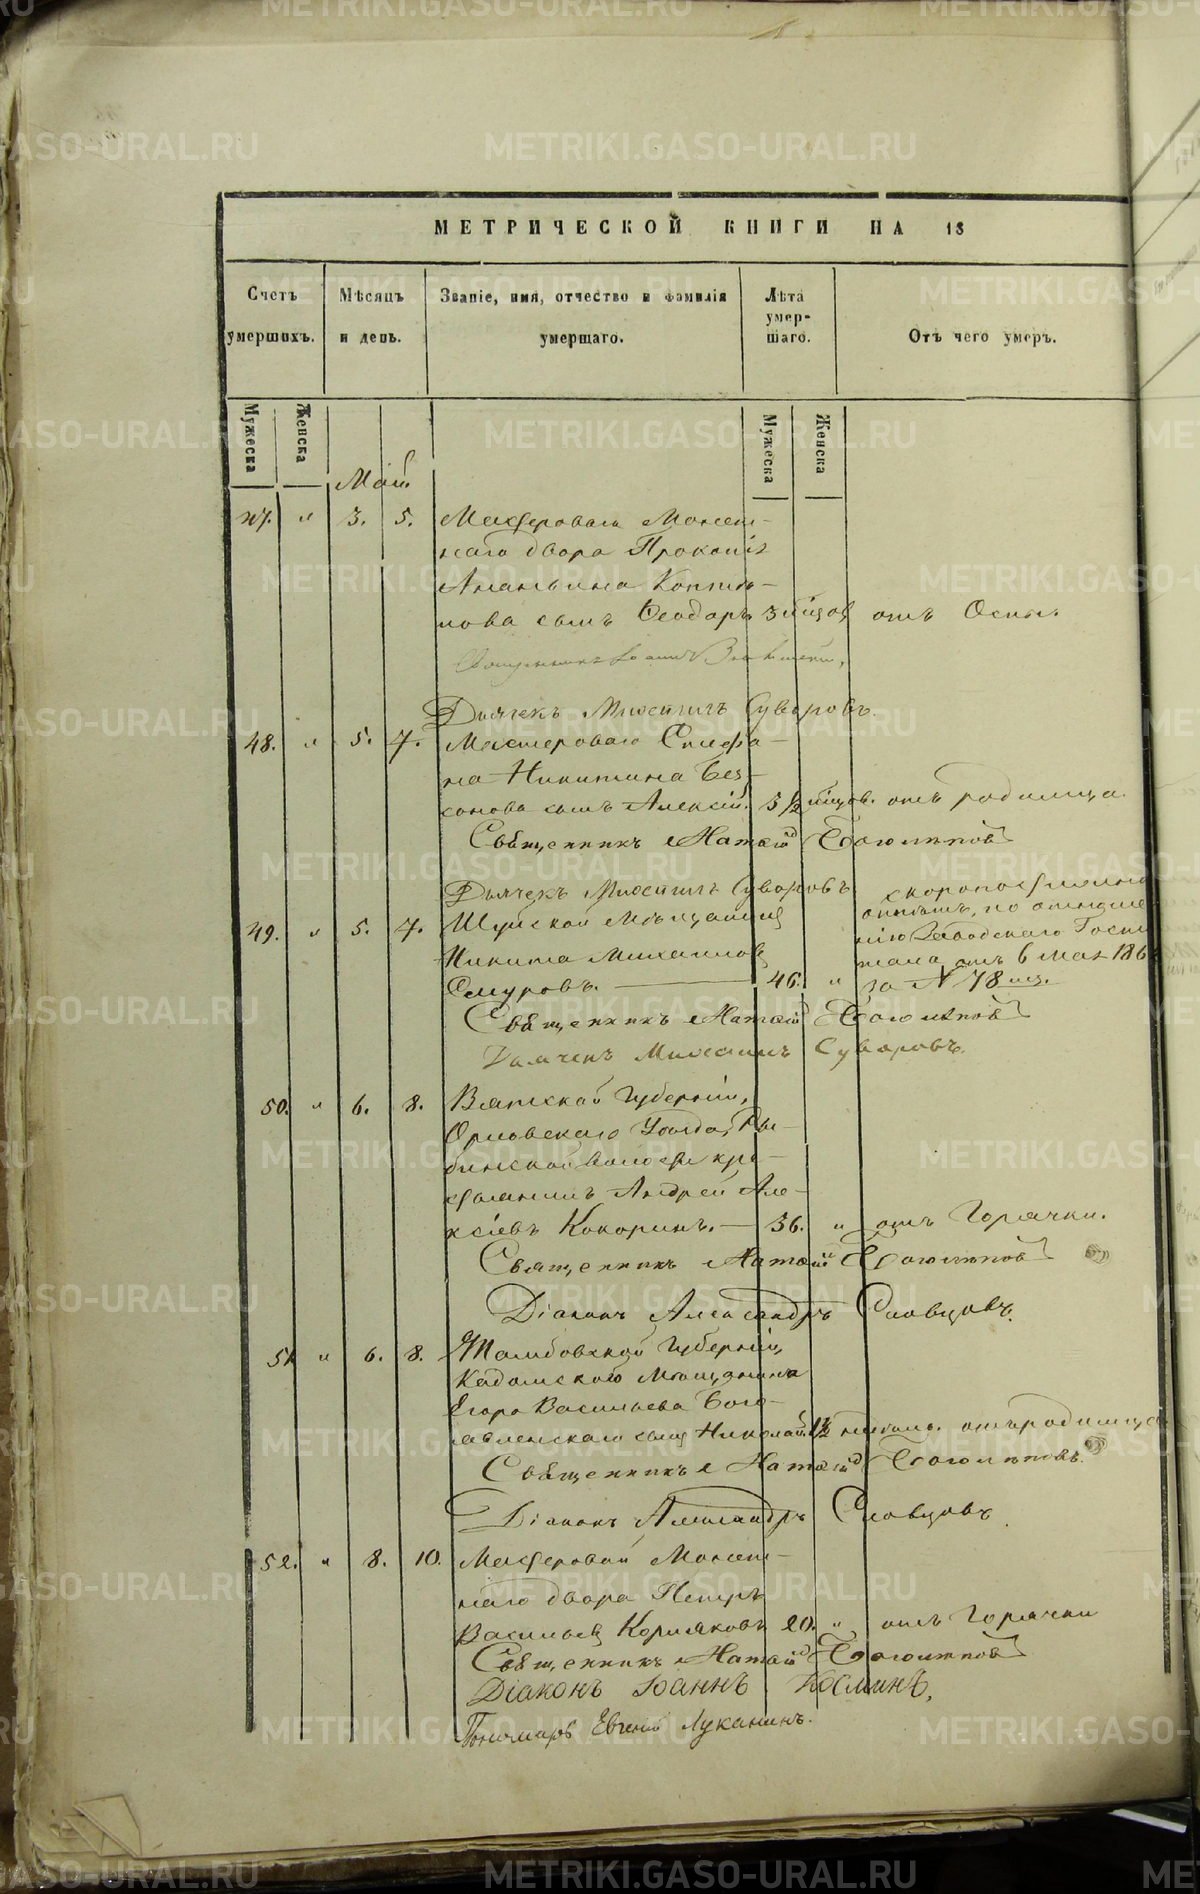 МЕТРИЧЕСКОЙ КНИГИ НА 18
Счетъ умершихъ.
Мѣсяцъ и день.
Званіе, имя, отчество и фамилія умершаго.
Лѣта умер-шаго.
Отъ чего умеръ.
Мужеска
Женска
Мужеска
Женска
Май
47. " 3. 5. Мастероваго Монет-
наго двора Прокопія
Ананьина
сынъ Ѳеодоръ 3 мѣсяцов отъ Оспы.
Священникъ
Дьячекъ Михаилъ Суворовъ.
48. " 5. 7. Мастероваго Стефа-
на Никитина Без-
сонова сынъ Алексій. 5½ мѣсцов. отъ родимца.
Священникъ Боголѣповъ
Дьячекъ Михаилъ Суворовъ
49. " 5. 7. Шуйской Мѣщанинъ
Никита Михаиловъ
46. "
скоропостижно
по отноше
нію Заводскаго Госпи
тала отъ 6 мая 186
за № 78
Священникъ Боголѣповъ
Дьячекъ Михаилъ Суворовъ.
50. " 6. 8. Вятской Губерніи,
Орловскаго Уѣзда,
волости кре-
стьянинъ Андрей Але-
ксіевъ Кокоринъ. — 36. " отъ Горячки.
Священникъ Боголѣповъ
Діаконъ Александръ Словцовъ.
51 " 6. 8. Тамбовской Губерніи,
Кадомскаго Мѣщанина
Егора Васильева Бого-
явленскаго сынъ Николай. 1½ отъ родимца
Священникъ Боголѣповъ.
Діаконъ Александръ Словцовъ
52. " 8. 10. Мастеровой Монет-
наго двора Петръ
Васильевъ Коряковъ 20. " отъ Горячки
Священникъ Боголѣповъ
Діаконъ Іоаннъ Косминъ.
Пономарь Евгеній Луканинъ.
METRIKI.GASO-URAL.RU